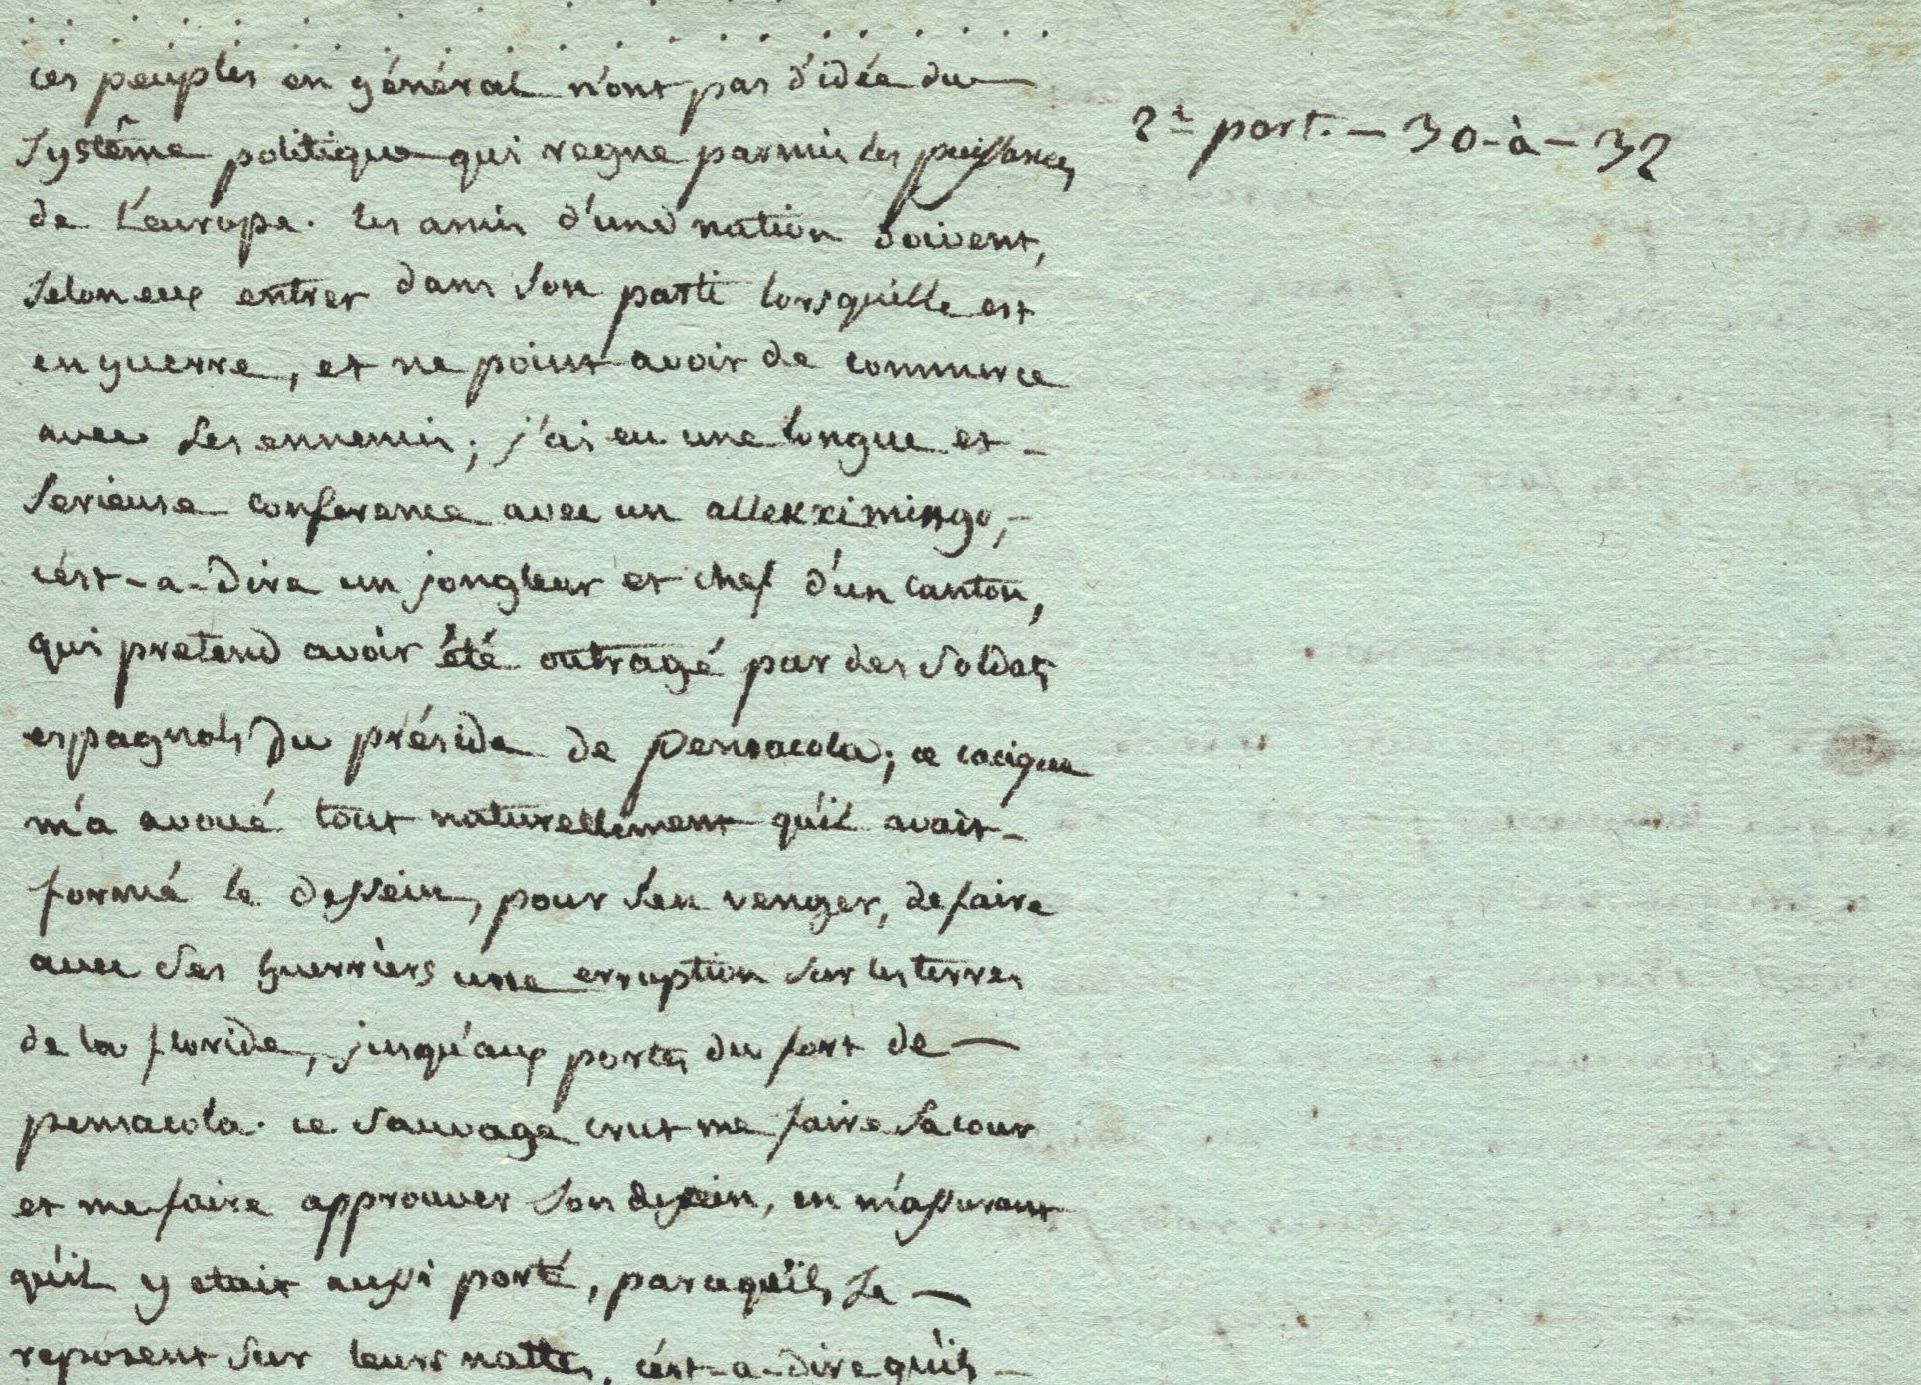 ces peuples en général n'ont pas d'idée du
Systême politique qui regne parmi les puissances
de l'europe. les amis d'une nation doivent,
Selon eux entrer dans Son parti lorsqu'elle est
en guerre, et ne point avoir de commerce
avec Ses ennemis; j'ai eu une longue et -
Serieuse conference avec un allexximingo, -
c'est-a-dire un jongleur et chef d'un canton,
qui pretend avoir été outragé par des Soldats
espagnols Du préside de pensacola; ce cacique
m'a avoué tout naturellement qu'il avait -
formé le dessein, pour S'en venger, de faire
avec Ses guerriers une erruption Sur les terres
de la floride, jusqu'aux portes du fort de —
pensacola. ce Sauvage crut me faire Sa cour
et me faire approuver Son dessein, en m'assurant
qu'il y etait aussi porté, parcequ'ils Se —
reposent Sur leurs nattes, c'est-a-dire qu'ils -
2e part. - 30 - à - 32